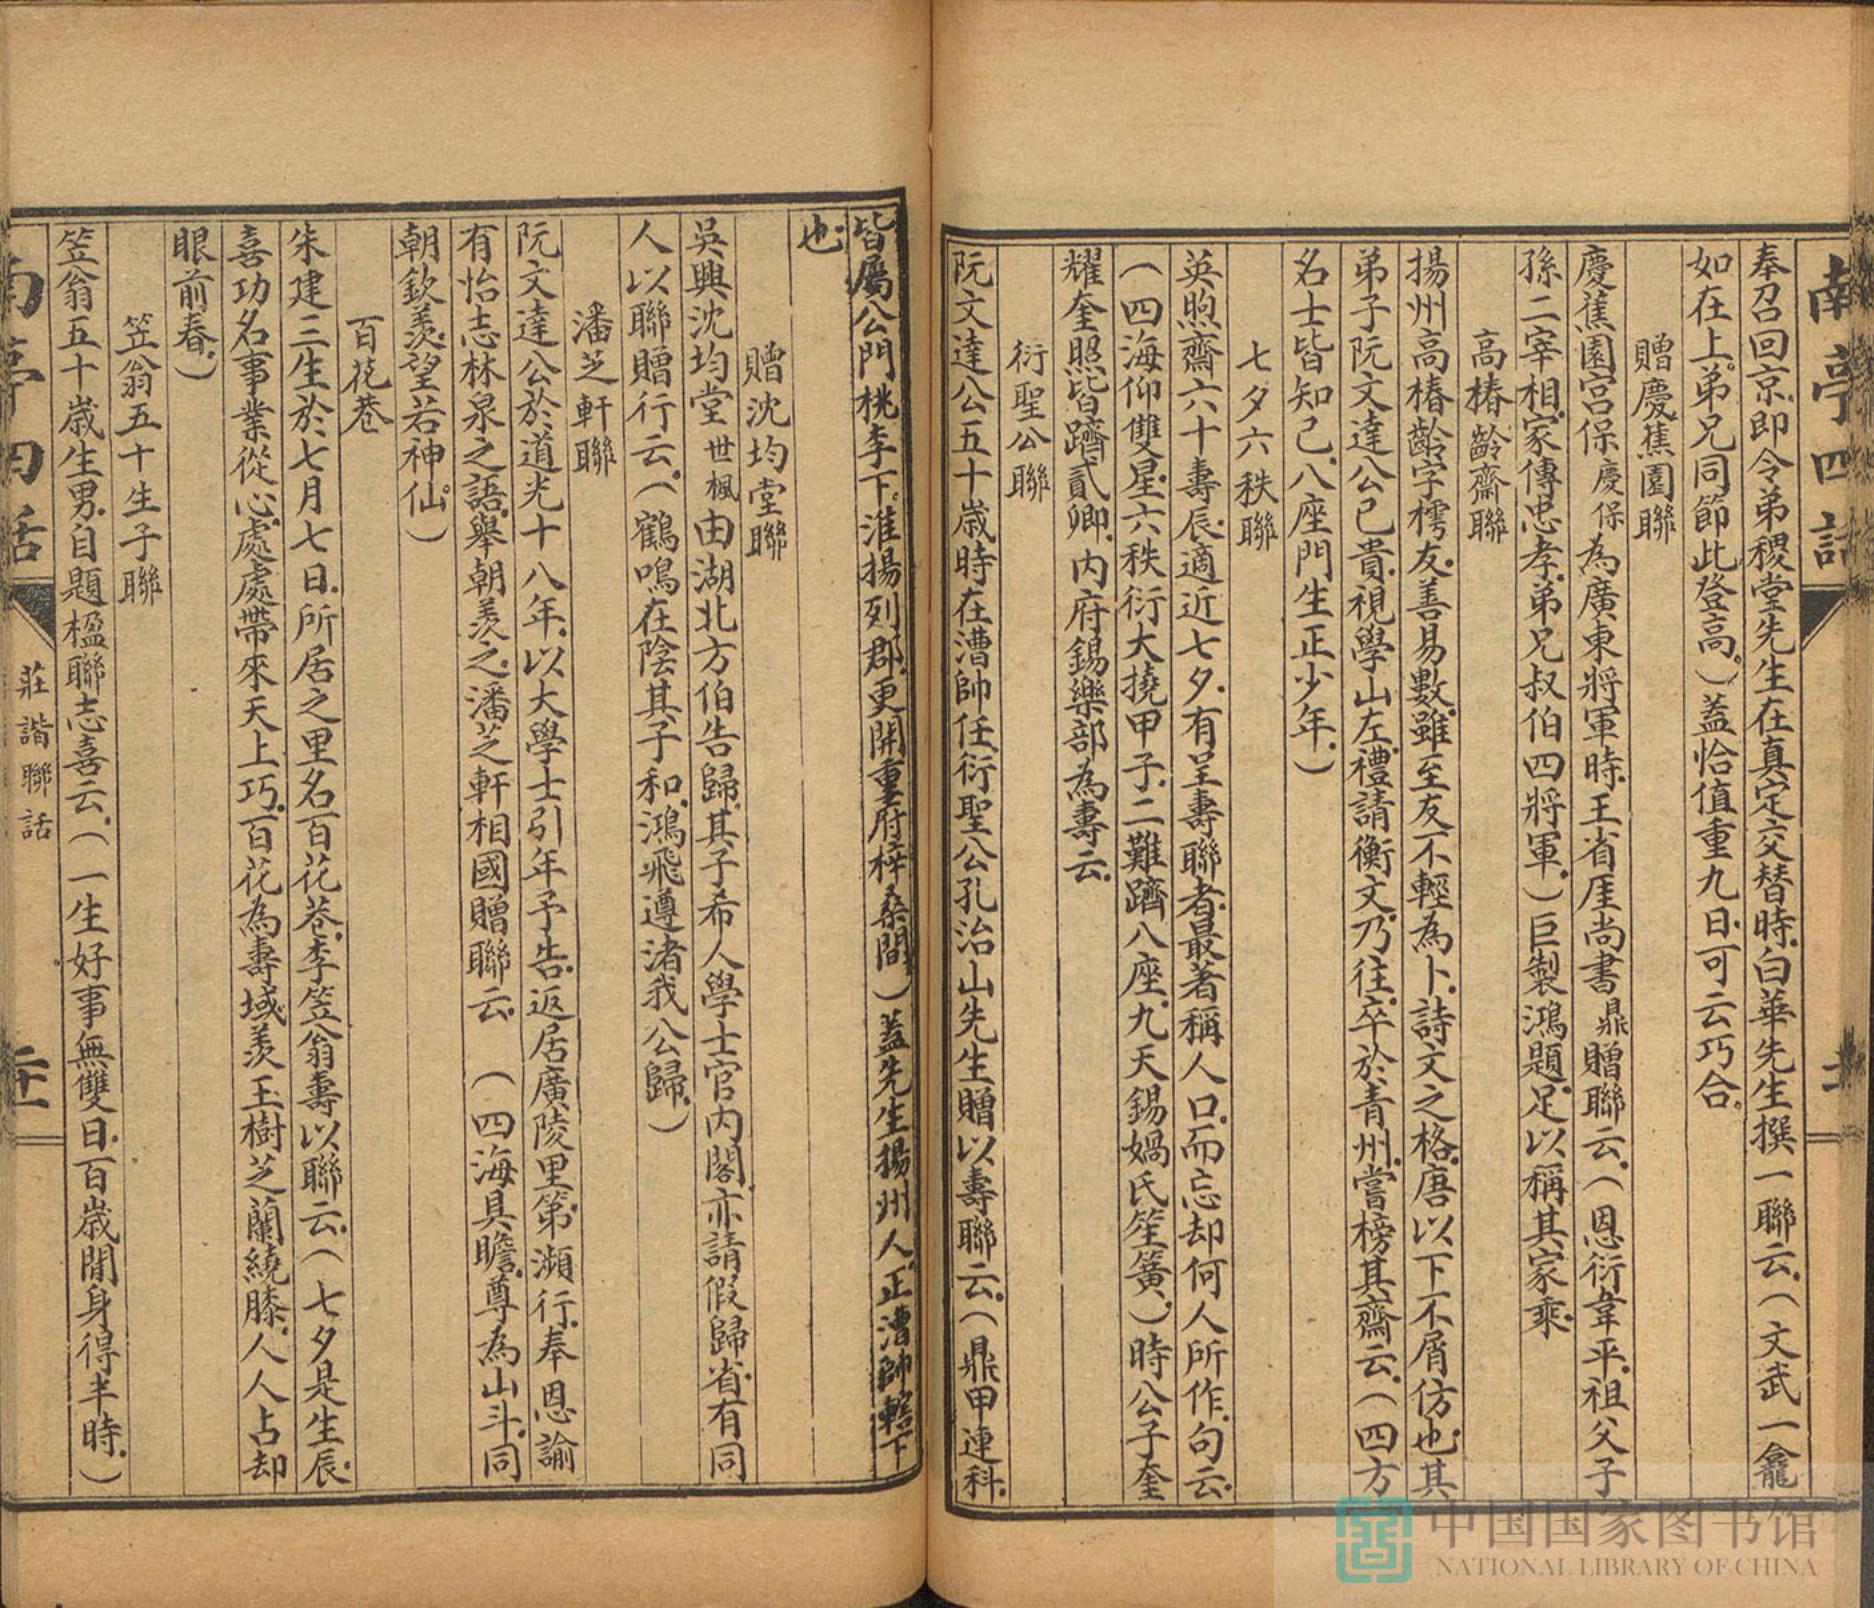 南亭四話
奉召回京即令弟稷堂先生在真定交替時白華先生撰一聯云（文武一龕
如在上弟兄同節此登高）蓋恰值重九日可云巧合
贈慶蕉園聯
慶蕉園宮保慶保為廣東將軍時王省厓尚書鼎贈聯云（恩衍韋平祖父子
孫二宰相家傳忠孝弟兄叔伯四將軍）巨製鴻題足以稱其家乘
高椿齡齋聯
揚州高椿齡字樗友善易數雖至友不輕為卜詩文之格唐以下不屑仿也其
弟子阮文達公已貴視學山左禮請衡文乃往卒於青州嘗榜其齋云（四方
名士皆知己八座門生正少年）
七夕六秩聯
英煦齋六十壽辰適近七夕有呈壽聯者最著稱人口而忘却何人所作句云
（四海仰雙星六秩衍大撓甲子二難躋八座九天錫媧氏笙簧）時公子奎
耀奎照皆躋貳卿內府錫樂部為壽云
衍聖公聯
阮文達公五十歲時在漕帥任衍聖公孔治山先生贈以壽聯云（鼎甲連科
皆屬公門桃李下淮揚列郡更開重府梓桑間）蓋先生揚州人正漕帥轄下
也
贈沈均堂聯
吳興沈均堂世楓由湖北方伯告歸其子希人學士官內閣亦請假歸省有同
人以聯贈行云（鶴鳴在陰其子和鴻飛遵渚我公歸）
潘芝軒聯
阮文達公於道光十八年以大學士引年予告返居廣陵里第瀕行奉恩諭
有怡志林泉之語舉朝羨之潘芝軒相國贈聯云（四海具瞻尊為山斗同
朝欽羨望若神仙）
百花巷
朱建三生於七月七日所居之里名百花巷李笠翁壽以聯云（七夕是生辰
喜功名事業從心處處帶來天上巧百花為壽域羨玉樹芝蘭繞膝人人占却
眼前春）
笠翁五十生子聯
笠翁五十歲生男自題楹聯志喜云（一生好事無雙日百歲閒身得半時）
南亭四話
莊諧聯話
中国国家图书馆
NATIONAL LIBRARY OF CHINA